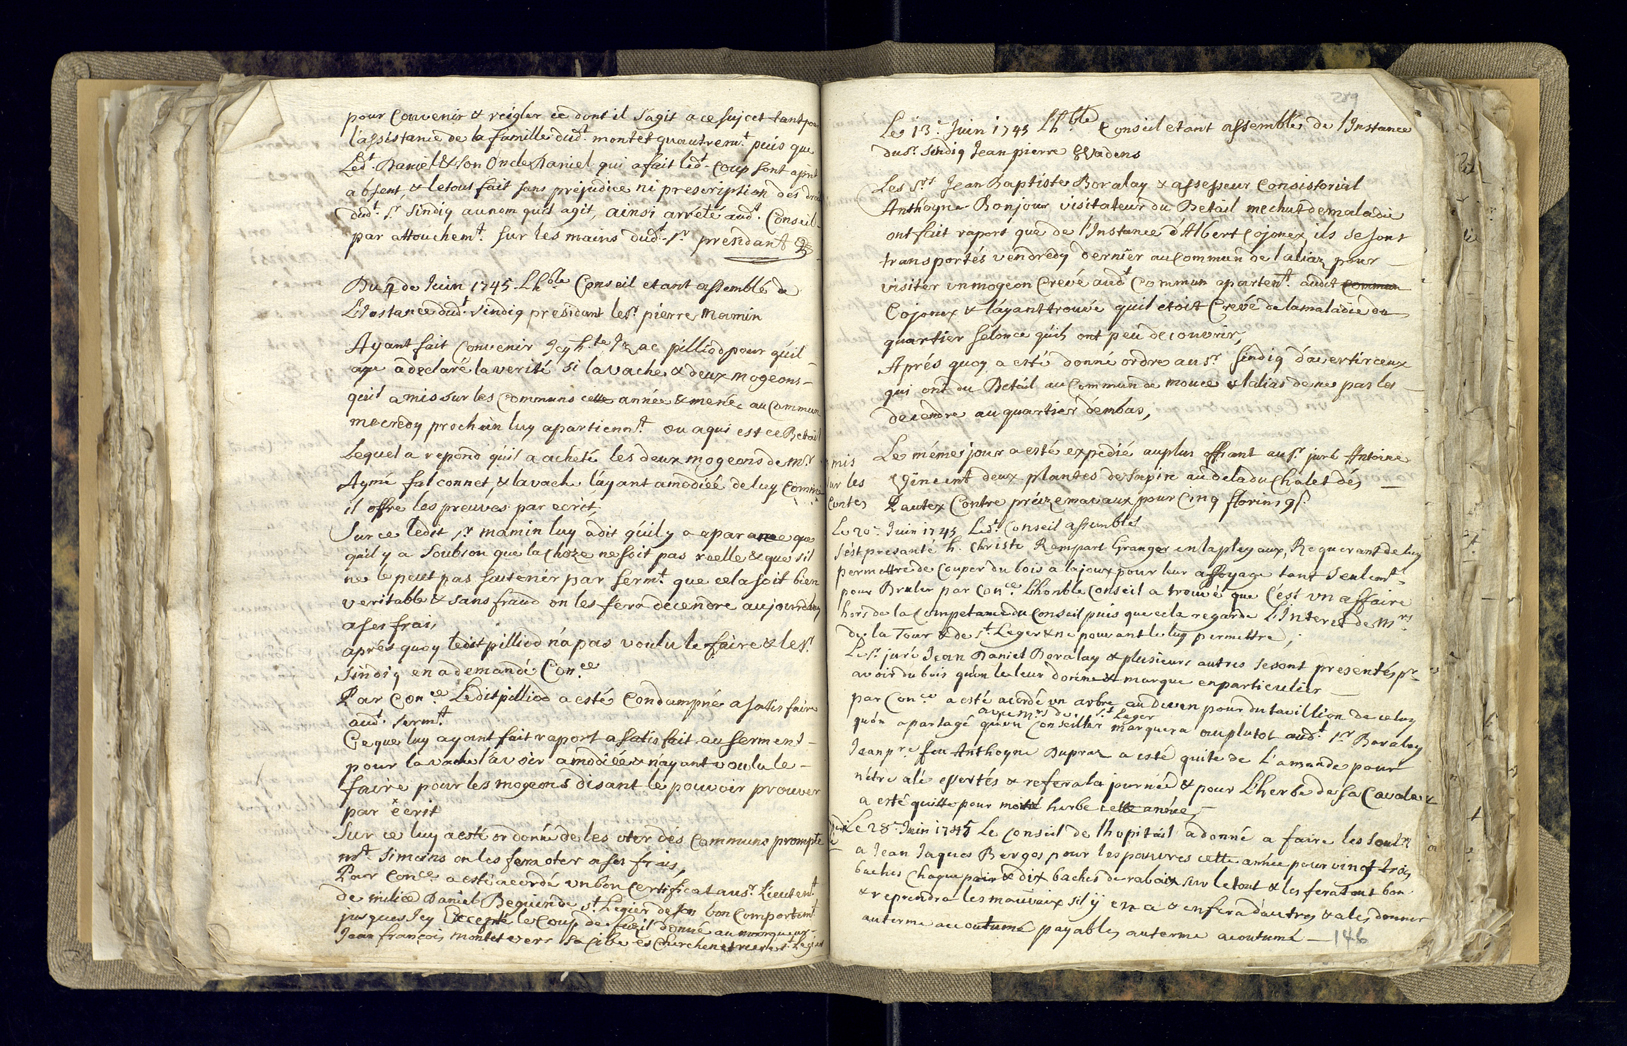 pour Convenir & reigler ce dont il s'agit a ce sujcet tant pour
l'assistance de la famille dud.t montet quautrem.t puis que
Led.t Daniel & son Oncle Daniel qui a fait led.t Coup sont
absent & le tout fait sans prejudice ni prescription des
dud.t Sr Sindiq au nom quil agit, ainsi arrété aud.t Conseil
par attouchem.t sur les mains dud.t Sr presidant
Du 9 de Juin 1745. Lh.ble Conseil etant assemblé de
L'Instance dud.t Sindiq presidant le Sr. pierre mamin
Ayant fait Convenir Icy h.te Izac pilliod pour quil
aye a declaré la verité si la vache & deux mogeons
quil a mis sur les Communs cette année & menée au Commun
mecredy prochain luy apartienn.t ou a qui est ce Betail
Lequel a repond quil a acheté les deux mogeons de mr
Ayme falconnet, & la vache l'ayant amodiée de luy Comme
il offre les preuves par ecrit,
Sur ce ledit Sr mamin luy a dit quil y a aparance que
quil y a Soubson que la choze ne soit pas réelle & que sil
ne le peut pas soutenir par serm.t que cela soit bien
veritable & sans fraud on les fera décendre aujourdhuy
a ses frais
aprés quoy ledit pilliod n'a pas voulu le faire & le Sr
Sindiq en a demandé Con.ce
Par Con.ce Ledit pilliod a esté Condampné a satisfaire
aud.t serm.t
Ce que luy ayant fait raport a satisfait au serment
pour la vache l'avoir amodiée & nayant voulu le
faire pour les mogeons disant le pouvoir prouver
par ecrit
Sur ce luy a esté ordonné de les oter des Communs prompte
m.t Simeins on les fera oter a ses frais,
Par Con.ce a esté acordé un bon Certificat au Sr. Lieuten.t
de milice Daniel Beguin de St. Legier de son bon Comportem.t
jusques Icy Excepté le Coup de fusil donné au
Jean françois montet vers sa
259
Le 13.e Juin 1745 Lh.ble Conseil etant assemblé de l'Instance
du Sr. Sindiq Jean pierre
Les Srs Jean Baptiste Boralay & assesseur Consistorial
Anthoyne Bonjour visitateur du Betail mechut de maladie
ont fait raport que de l'Instance d'Albert Cojonex ils se sont
transportés vendredy dernier au Commun de l'aliaz pour
visiter un mogeon Crevé aud.t Commun aparten.t audit
Cojonex & layant trouvé quil etoit Crevé de la maladie du
quartier selon ce quils ont peu decouvrir,
Aprés quoy a esté donné ordre au Sr Sindiq d'avertir ceux
qui ont du Betail au Commun de mouce & laliaz de ne pas les
decendre au quartier d'embas,
mis
sur les
Contes
Le méme jour a esté expedié au plus offrant au Sr. juré Antoine
deux plantes de Sapin au dela du Chalet des
Pautex Contre préizemaraux pour Cinq florins 9 s.
Le 20.e Juin 1745 Led.t Conseil assemblé
S'est presanté h. Christe Rampart Granger en la pleyaux, Requerant de luy
permettre de Couper du bois a la joux pour leur affoyage tant seulem.t
pour Bruler par Con.ce Lhonble Conseil a trouvé que C'est un affaire
hors de la Competance du Conseil puis que cela regarde L'Interet de Mrs
De la Tour & de St. Leger & ne pouvant le luy permettre,
Le Sr. juré Jean Daniel Boralay & plusieurs autres se sont presentés pr
avoir du bois quon le leur donne & marque en particulier
par Con.ce a esté acordé un arbre au deven pour du tavillion de celuy
avec mrs de St Leger
quon a partagé quun Conseiller marquera ou plutot aud.t Sr Boralay
Jean pre feu Anthoyne Dupraz a esté quitté de L'amande pour
nétre alé essertés & refera la journée & pour L'herbe de sa Cavale
a esté quitte pour moitié herbe cette année,
Le 28.e Juin 1745 Le Conseil de lhopital a donné a faire les soul.rs
a Jean Jaques Berges pour les pauvres cette année pour vingt trois
baches Chaque pair & dix baches de rabais sur le tout & les fera tout bon
& reprendra les mauvais sil y en a & en fera d'autres & a les donner
au terme acoutumé payables au terme acoutumé
146